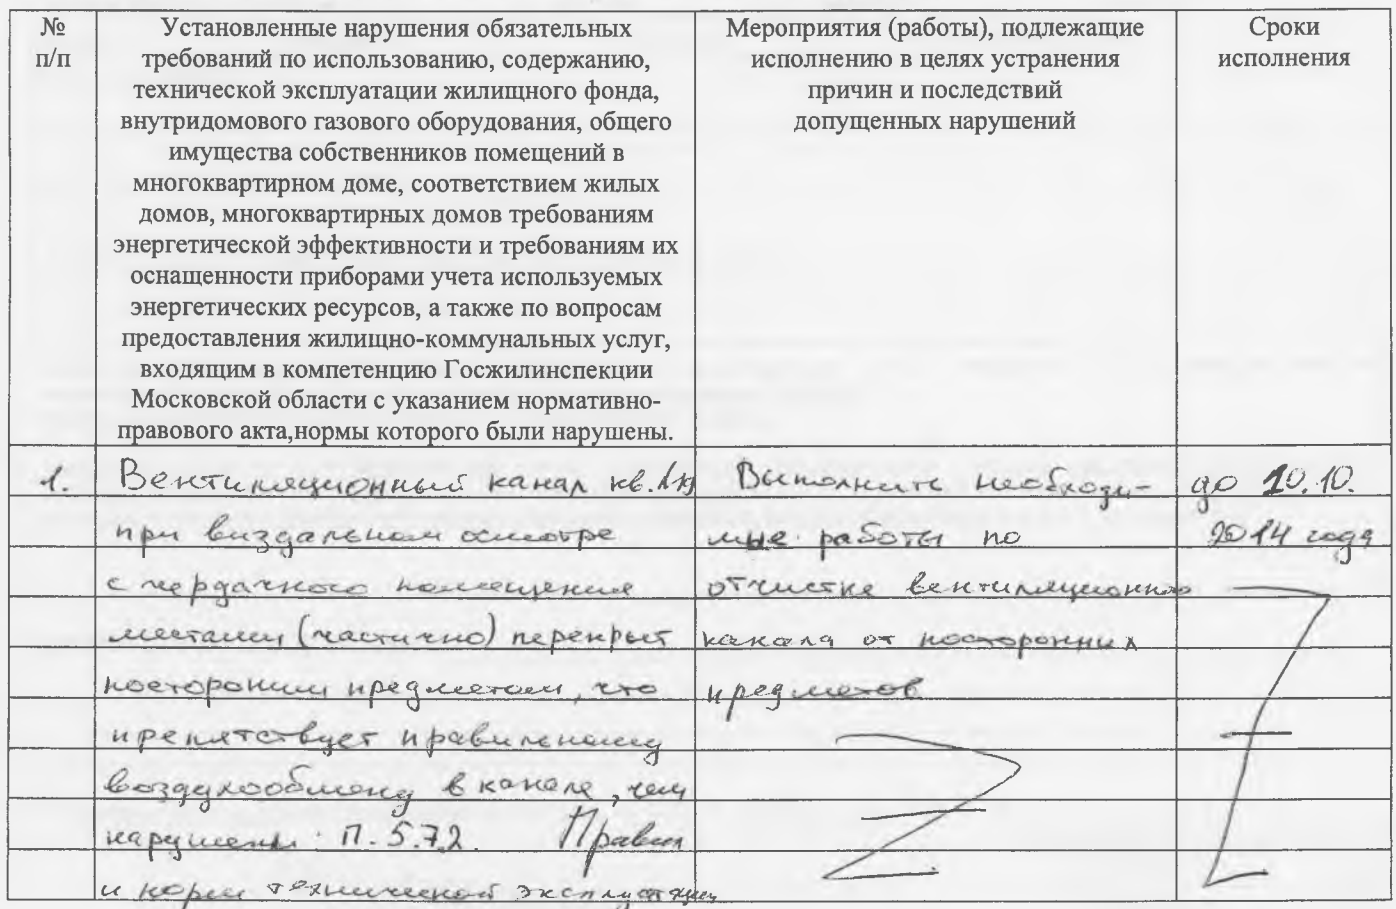 №
п/п
Установленные нарушения обязательных
требований по использованию, содержанию,
технической эксплуатации жилищного фонда,
внутридомового газового оборудования, общего
имущества собственников помещений в
многоквартирном доме, соответствием жилых
домов, многоквартирных домов требованиям
энергетической эффективности и требованиям их
оснащенности приборами учета используемых
энергетических ресурсов, а также по вопросам
предоставления жилищно-коммунальных услуг,
входящим в компетенцию Госжилинспекции
Московской области с указанием нормативно-
правового акта,нормы которого были нарушены.
Мероприятия (работы), подлежащие
исполнению в целях устранения
причин и последствий
допущенных нарушений
Сроки
исполнения
1.
Вентиляционный канал кв.
при визуальном осмотре
с чердачного помещения
местами (частично) перекрыт
посторонним предметом, что
препятствует правильному
воздухообмену в канале, чем
нарушены: П. 5.7.2. Правил
и норм технической эксплуатации
Выполнить необходи-
мые работы по
отчистке вентиляционного
канала от посторонних
предметов
до 10.10.
2014 года